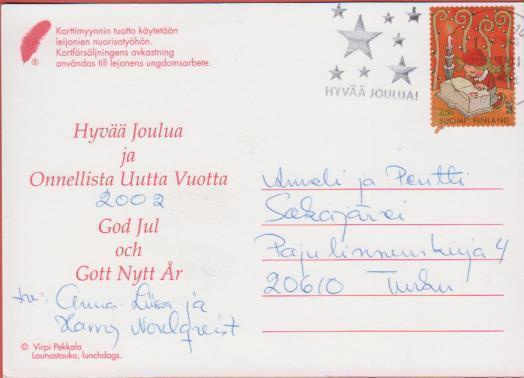 Korttimyynnin tuotto käytetään
leijonien nuorisotyöhön.
Kortförsäljningens avkastning
användas till lejonens ungdomsarbete.
®
HYVÄÄ JOULUA!
2,50
SUOMI FINLAND
Hyvää Joulua
ja
Onnellista Uutta Vuotta
2002
God Jul
och
Gott Nytt År
tv: Anna-Liisa ja
Harry Nordqvist
Anneli ja Pentti
Sakajärvi
Pajulinnunkuja 4
20610 Turku
© Virpi Pekkala
Lounastauko, lunchdags.